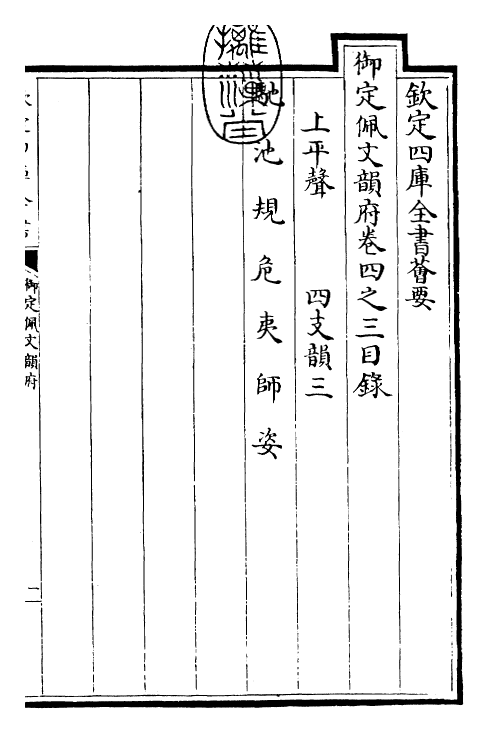 欽定四庫全書薈要
御定佩文韻府卷四之三目錄
上平聲 四支韻三
馳池規危夷師姿
御定佩文韻府
一